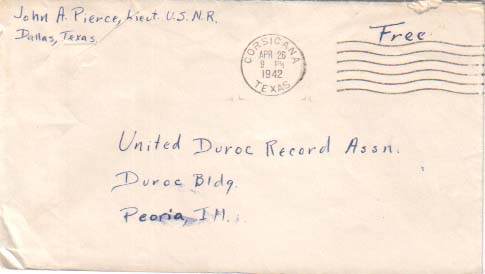 John A. Pierce, Lieut. U.S.N.R.
Dallas, Texas.
Free
CORSICANA
APR 26
9 PM
1942
TEXAS
United Duroc Record Assn.
Duroc Bldg.
Peoria, Ill.